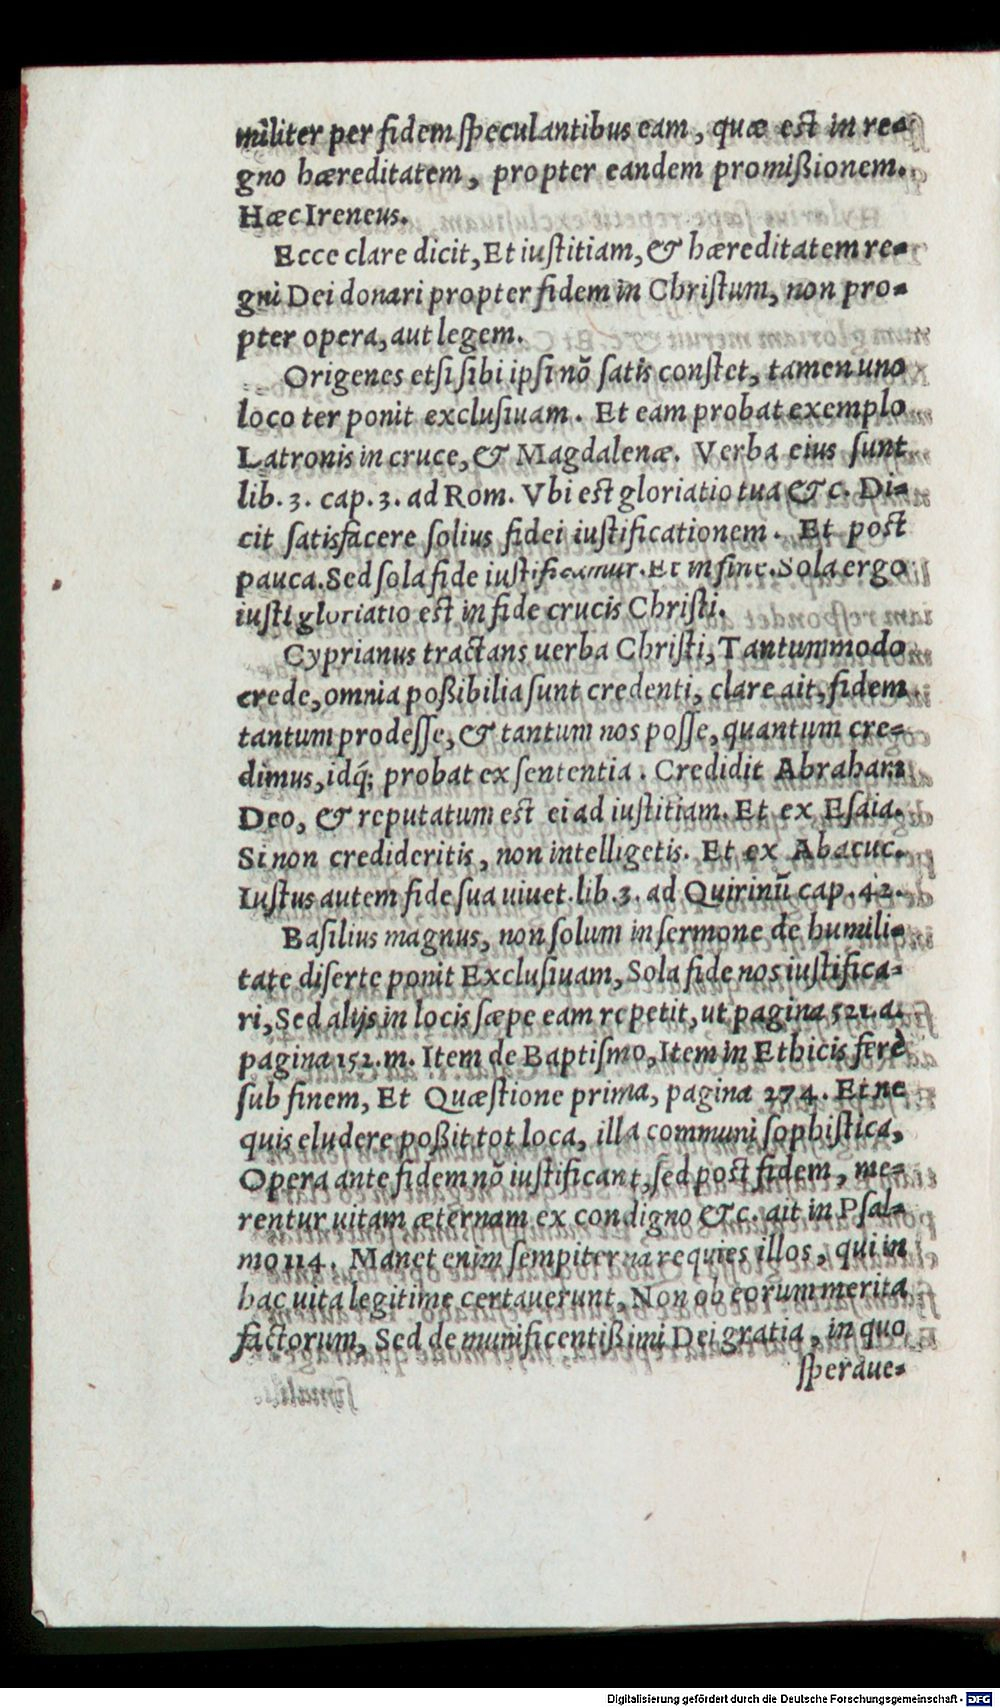 militer per fidem ſpeculantibus eam, quæ est in re-
gno hæreditatem, propter eandem promißionem.
Hæc Ireneus.
Ecce clare dicit, Et iuſtitiam, & hæreditatem re-
gni Dei donari propter fidem in Chriſtum, non pro-
pter opera, aut legem.
Origenes etſi ſibi ipſi nõ ſatis conſtet, tamen uno
loco ter ponit excluſiuam. Et eam probat exemplo
Latronis in cruce, & Magdalenæ. Verba eius ſunt
lib. 3. cap. 3. ad Rom. Vbi est gloriatio tua &c. Di-
cit ſatisfacere ſolius fidei iuſtificationem. Et post
pauca. Sed ſola fide iuſtificamur. Et in fine. Sola ergo
iuſti gloriatio est in fide crucis Chriſti.
Cyprianus tractans uerba Chriſti, Tantummodo
crede, omnia poßibilia ſunt credenti, clare ait, fidem
tantum prodeſſe, & tantum nos poſſe, quantum cre-
dimus, idq́; probat ex ſententia. Credidit Abraham
Deo, & reputatum est ei ad iuſtitiam. Et ex Eſaia.
Si non credideritis, non intelligetis. Et ex Abacuc.
Iuſtus autem fide ſua uiuet. lib. 3. ad Quirinũ cap. 42.
Baſilius magnus, non ſolum in ſermone de humili-
tate diſerte ponit Excluſiuam, Sola fide nos iuſtifica-
ri, Sed alijs in locis ſæpe eam repetit, ut pagina 521. a.
pagina 152. m. Item de Baptiſmo, Item in Ethicis ferè
ſub finem, Et Quæſtione prima, pagina 274. Et ne
quis eludere poßit tot loca, illa communi ſophiſtica,
Opera ante fidem nõ iuſtificant, ſed post fidem, me-
rentur uitam æternam ex condigno &c. ait in Pſal-
mo 114. Manet enim ſempiterna requies illos, qui in
hac uita legitime certauerunt, Non ob eorum merita
factorum, Sed de munificentißimi Dei gratia, in quo
ſperaue-
Digitalisierung gefördert durch die Deutsche Forschungsgemeinschaft - DFG